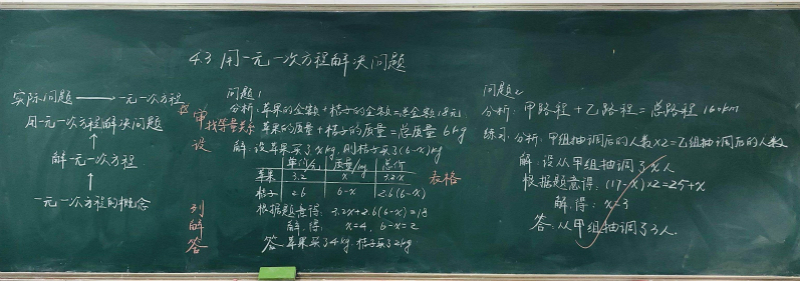 4.3 用一元一次方程解决问题
实际问题 → 一元一次方程
用一元一次方程解决问题
解一元一次方程
一元一次方程的概念
审
找等量关系
设
列
解
答
问题1
分析:苹果的金额+桔子的金额=总金额18元
苹果的质量+桔子的质量=总质量6kg
解:设苹果买了xkg,则桔子买了(6-x)kg
单价/元 质量/kg 总价
苹果 3.2 x 3.2x
桔子 2.6 6-x 2.6(6-x)
表格
根据题意得:3.2x+2.6(6-x)=18
解,得:x=4, 6-x=2
答:苹果买了4kg,桔子买了2kg
问题2
分析:甲路程+乙路程=总路程160km
练习:分析:甲组抽调后的人数×2=乙组抽调后的人数
解:设从甲组抽调了x人
根据题意得:(17-x)×2=25+x
解,得:x=3
答:从甲组抽调了3人.